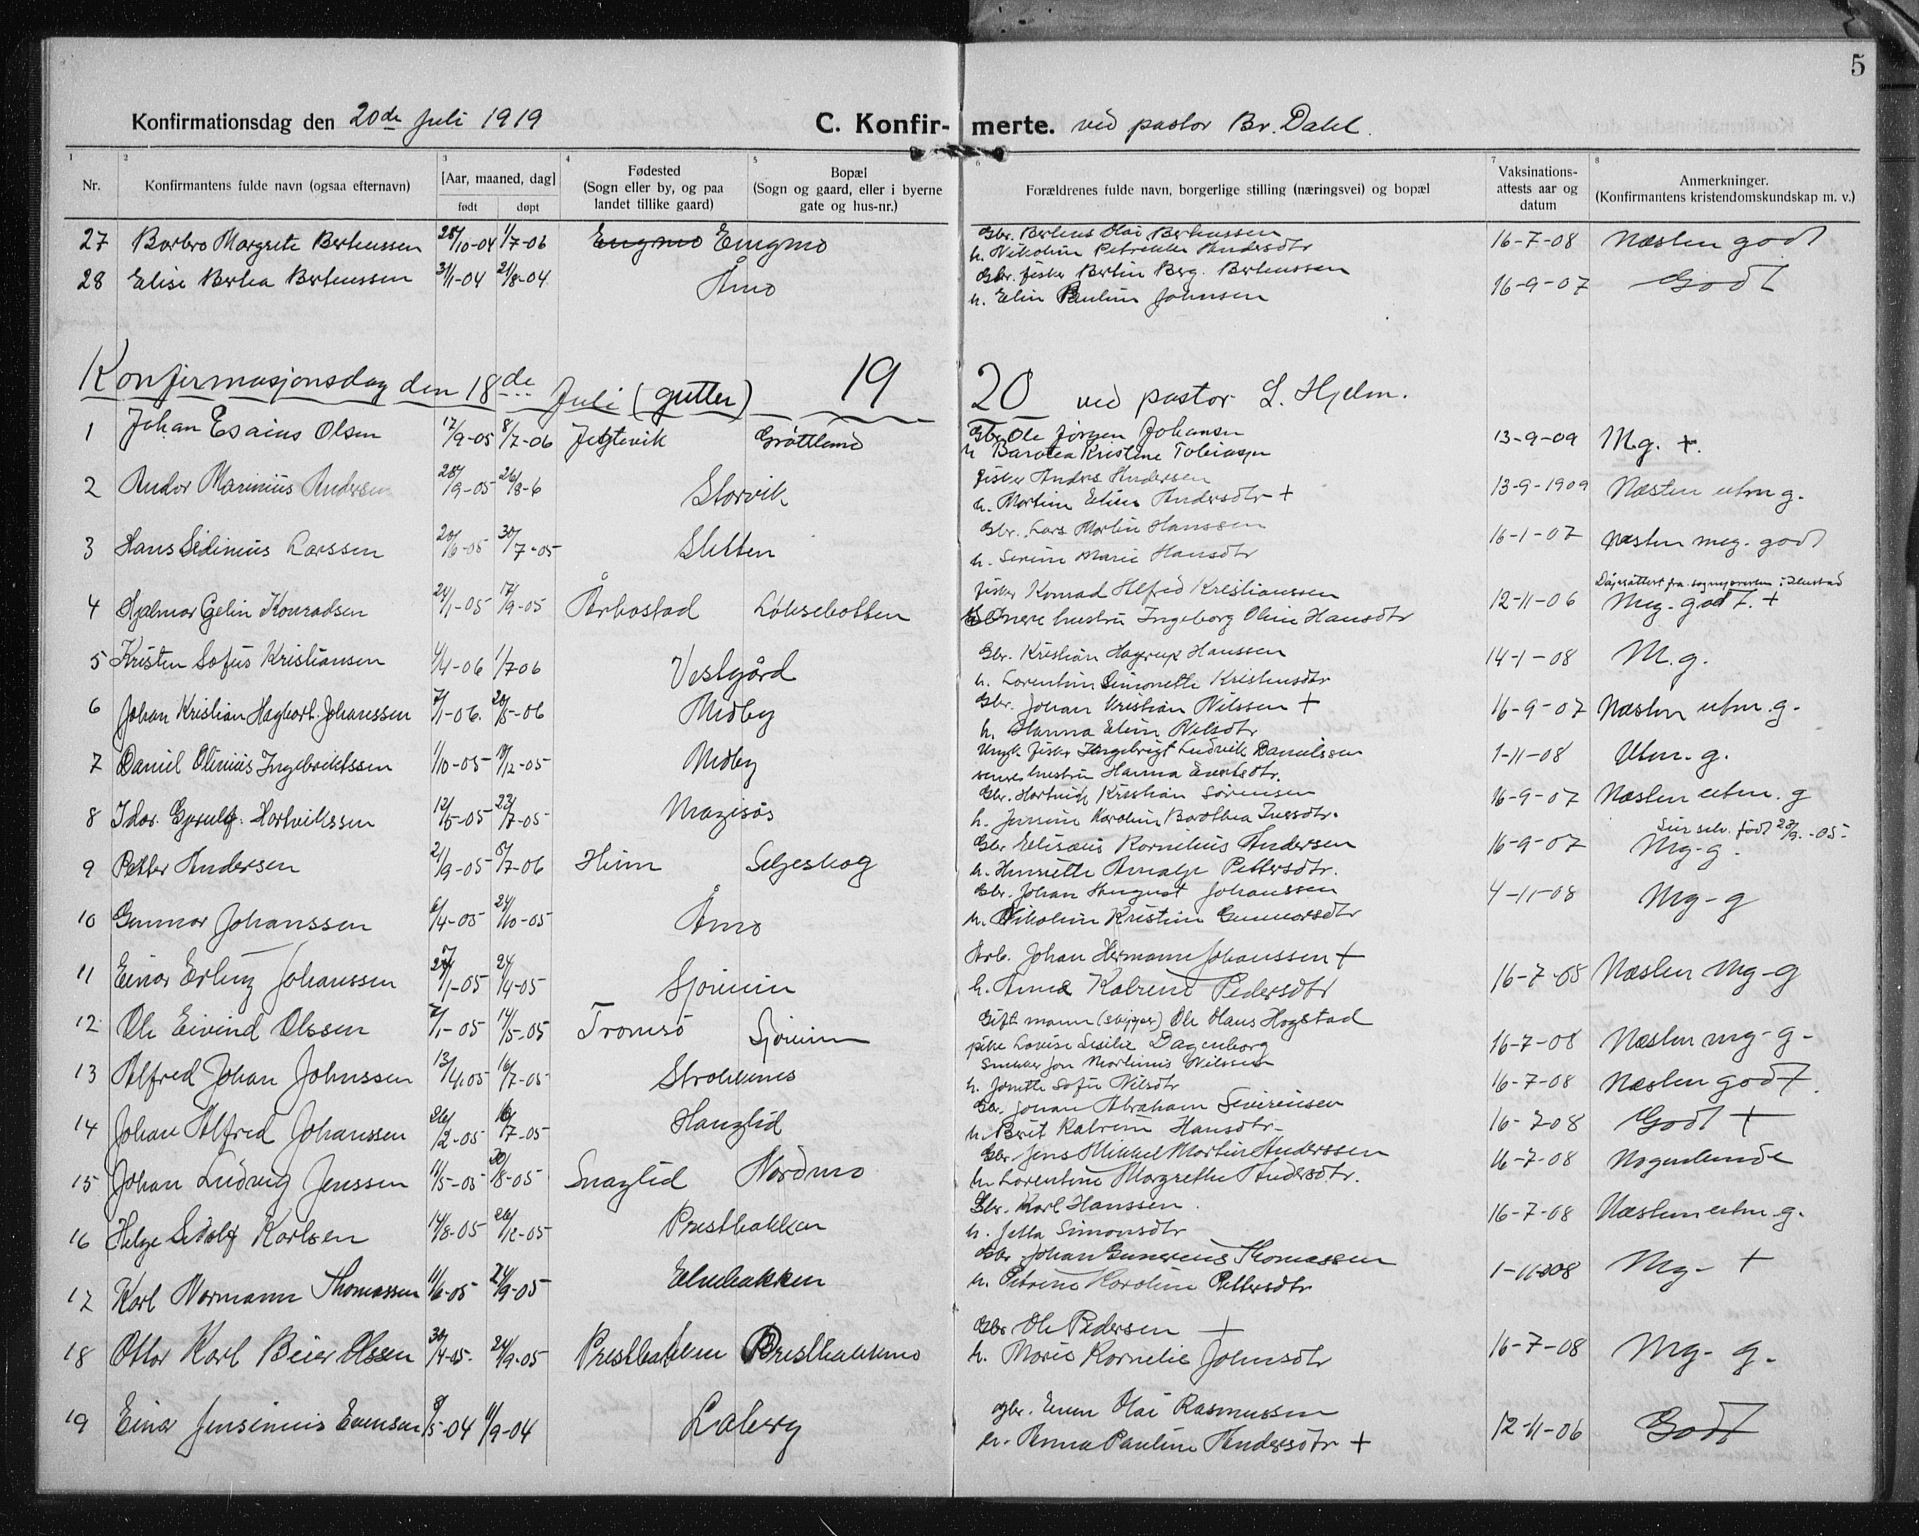 5
Konfirmationsdag den 20de Juli 1919 C. Konfir- merte. ved pastor Br. Dahl.
1 2 3 4 5 6 7 8
Nr. Konfirmantens fulde navn (ogsaa efternavn) [Aar, maaned, dag] født døpt Fødested (Sogn eller by, og paa landet tillike gaard) Bopæl (Sogn og gaard, eller i byerne gate og hus-nr.) Forældrenes fulde navn, borgerlige stilling (næringsvei) og bopæl Vaksinations-attests aar og datum Anmerkninger. (Konfirmantens kristendomskundskap m. v.)
27 Borbro Margrete Berteussen 28/10-04 1/7-06 Engmo Gbr. Berteus Olai Berteussen 16-7-08 Næsten godt
h. Nikoline Petrikke Andersdtr
28 Elise Bertea Berteussen 31/1-04 21/8-04 Åmo Gbr. fisker Bertin Berg. Berteussen 16-9-07 Godt
h. Elen Pauline Johnsen
Konfirmasjonsdag den 18de Juli (gutter) 19 20 ved pastor L. Hjelm.
1 Johan Esaius Olsen 17/9-05 8/7-06 Jektevik Grøttland Gbr. Ole Jørgen Johansen 13-9-09 Mg. +.
h Barolea Kristine Tobiasen
2 Andor Marinius Andersen 28/9-05 26/8-6 Storvik fisker Anders Andersen 13-9-1909 Næsten utm g.
h. Martine Eline Andersdtr +
3 Hans Sedinius Larssen 20/6-05 30/7-05 Sletten Gbr. Lars Martin Hanssen 16-1-07 Næsten meg. godt
h. Serine Marie Hansdtr
4 Hjalmar Gelin Konradsen 24/1-05 17/9-05 Årbostad Løksebotten fisker Konrad Alfred Kristianssen 12-11-06 Meg- godt. +
senere hustru Ingeborg Oline Hansdtr
5 Kristen Sofus Kristiansen 4/4-06 1/7 06 Vestgård Gbr. Kristian Hagerup Hanssen 14-1-08 M.g.
h. Lorentine Simonette Kristensdtr
6 Johan Kristian Hagbart. Johanssen 7/1-06. 20/5-06 Midby Gbr. Johan Kristian Nilssen + 16-9-07 Næsten utm.g.
h. Hanna Elen Nilsdtr
7 Daniel Olinius Ingebriktssen 1/10-05 10/12-05 Midby Ungk. fisker Ingebrigt Ludvik Danielssen 1-11-08 Utm. g.
senere hustru Hanna Evertsdtr.
8 Hartvikssen 12/5-05 23/7-05 Gbr. Hartvik Kristian Sørensen 16-9-07 Næsten utm. g
h. Jensine Karoline Dorothea Jensdtr.
9 Petter Andersen 21/9-05 8/7-06 Heim Seljeskog Gbr Elisæus Kornelius Andersen 16-9-07 Sier selv. født 23/9.-05- Mg-g.
h. Henriette Amalje Pettersdtr.
10 Gunnar Johanssen 6/4-05 24/10-05 Åmo Gbr. Johan August Johanssen 4-11-08 Mg-g
h. Nikoline Kristine Gunnarsdtr
11 Einar Erling Johanssen /1-05 24/4-05 Sjøvein Arb. Johan Hermann Johanssen + 16-7-08 Næsten Mg-g
h. Anna Katrine Pedersdtr
12 Ole Eivind Olssen 7/1-05 14/5-05 Tromsø Sjøvein Gift mann (skipper) Ole Hans Hogstad 16-7-08 Næsten mg-g-
pike Lovise Sesilie Dagenborg
13 Alfred Johan Johnssen 13/4.05 16/7-05 Strokkenes Snekker Jon Mortinus Nilssen 16-7-08 Næsten godt.
h. Jonette Sofie Nilsdtr
14 Johan Alfred Johanssen 26/2-05 16/7-05 Hanglid Gbr. Johan Abraham Severinsen 16-7 08 Godt +
h. Berit Katrine Hansdtr-
15 Johan Ludvig Jenssen 11/5-05 20/8-05 Snaglid Nordmo Gbr. Jens Mikkel Martin Anderssen 16-7-08 Nogenlunde
h. Lorentine Margrethe Andersdtr.
16 Helge Karlsen 14/8-05 26/12-05 Prestbakken Gbr. Karl Hanssen 16-7-08 Næsten utm g.
h. Jetta Simonsdtr
17 Karl Normann Thomassen 11/6-05 24/9-05 Elvebakken Gbr Johan Gunerius Thomassen 1-11-08 Mg- +
h. Petrine Karoline Pettersdtr
18 Ottar Karl Beier Olssen 30/4-05. 24/9-05 Prestbakken Prestbakkmo Gbr Ole Pedersen + 16-7-08 Mg- g.
h. Marie Kornelie Johnsdtr
19 Einar Jensenius Evensen 8/5-04 11/9-04 Laberg gbr. Even Olai Rasmussen 12-11-06 Godt
h. Anna Pauline Andersdtr +